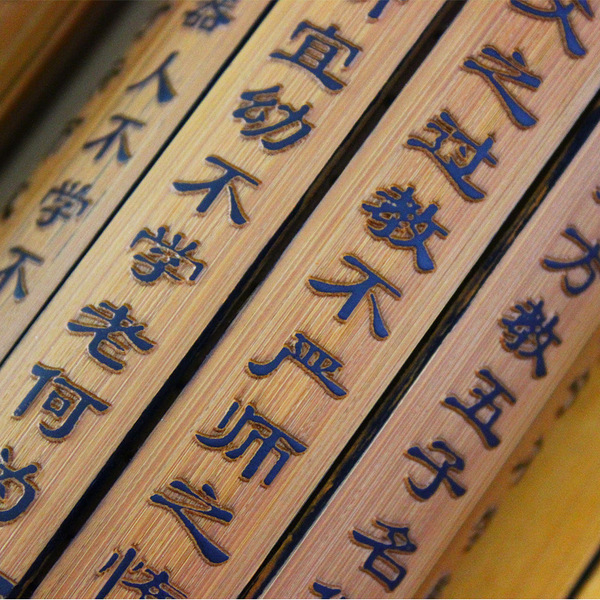 方教五子名
父之过教不严师之
宜幼不学老何为
器人不学不